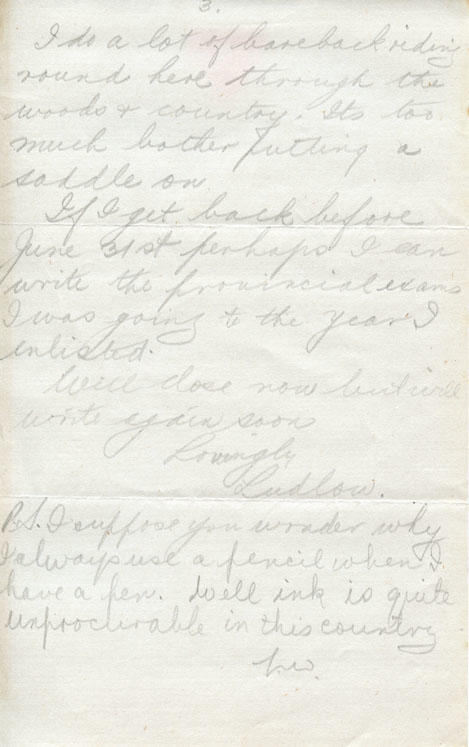 3.
I do a lot of bareback riding
round here through the
woods & country. Its too
much bother putting a
saddle on
If I get back before
June 31st perhaps I can
write the provincial exams
I was going to the year I
enlisted.
Well close now but will
write again soon
Lovingly
Ludlow.
P.S. I suppose you wonder why
I always use a pencil when I
have a pen. Well ink is quite
unprocurable in this country